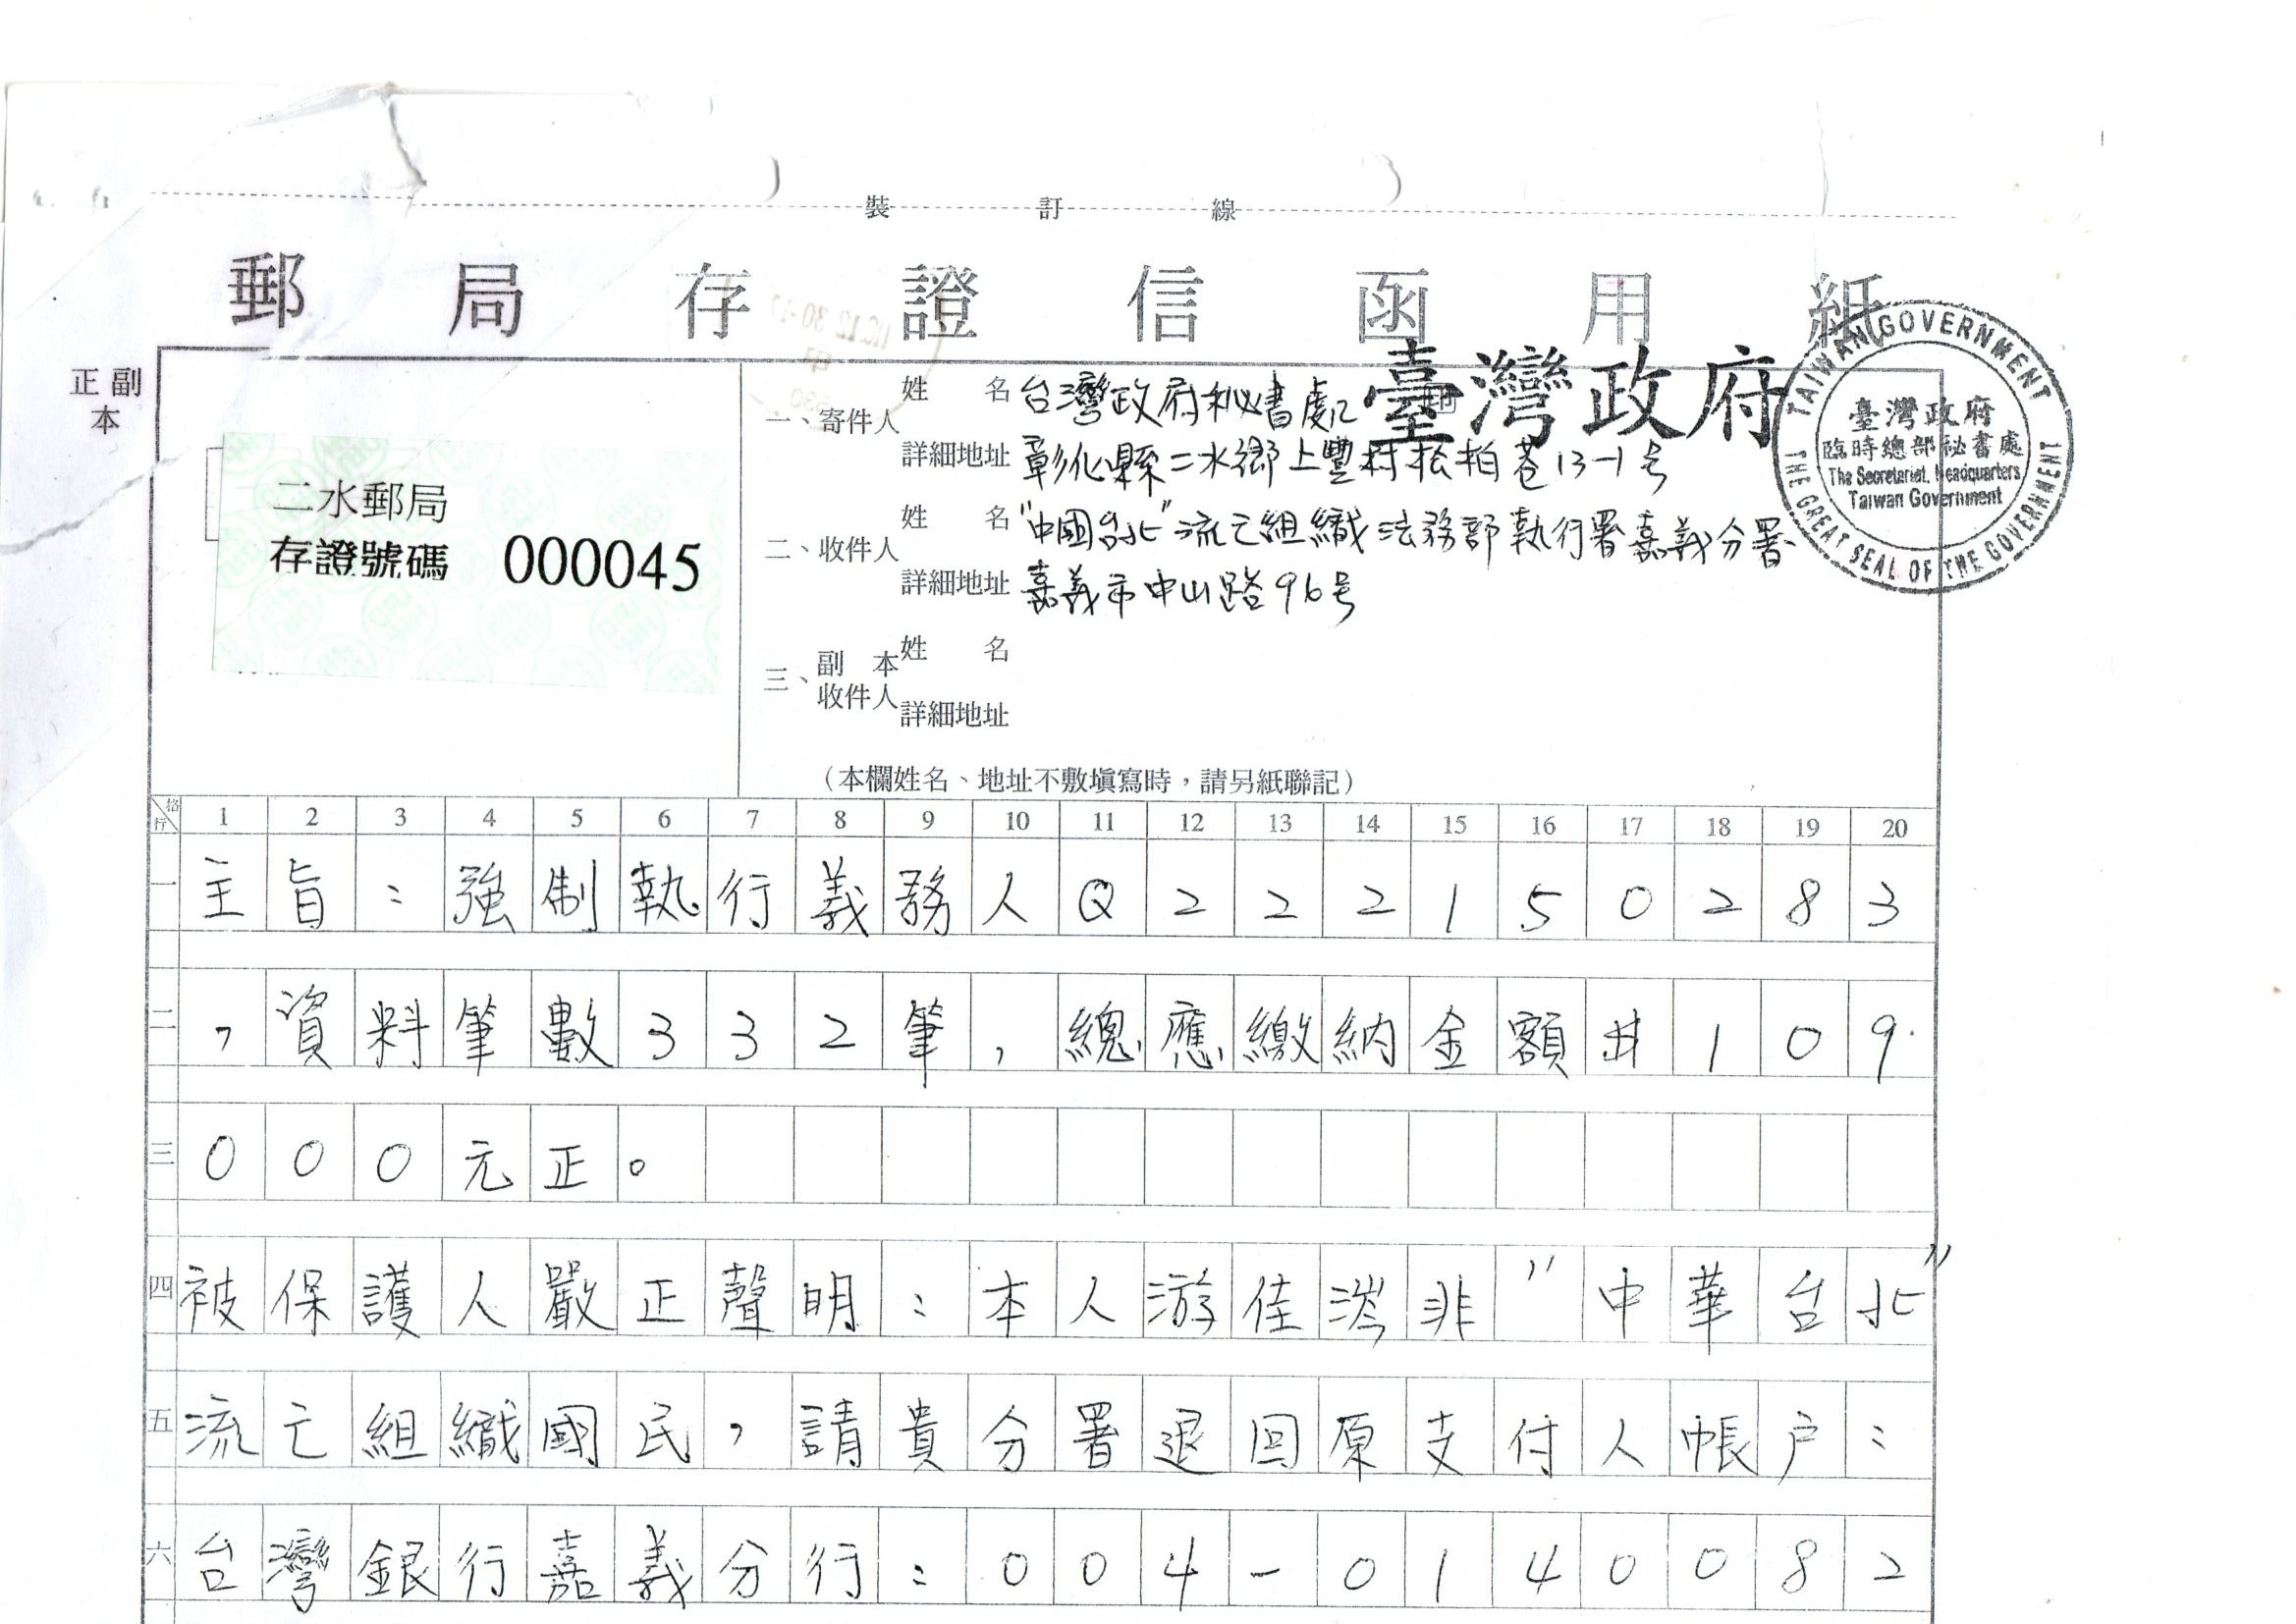 裝 訂 線
郵局存證信函用紙
正 副
本
二水郵局
存證號碼 000045
一、寄件人
姓 名 台灣政府秘書處
臺灣政府
詳細地址 彰化縣二水鄉上豐村松柏巷13-1号
二、收件人
姓 名 "中國台北"流亡組織法務部執行署嘉義分署
詳細地址 嘉義市中山路96号
三、副 本
收件人
姓 名
詳細地址
(本欄姓名、地址不敷塡寫時,請另紙聯記)
TAIWAN GOVERNMENT
臺灣政府
臨時總部秘書處
The Secretariat, Headquarters
Taiwan Government
THE GREAT SEAL OF THE GOVERNMENT
格 行 1 2 3 4 5 6 7 8 9 10 11 12 13 14 15 16 17 18 19 20
一 主旨:強制執行義務人Q222150283
二 ,資料筆數332筆,總應繳納金額#109
三 000元正。
四 被保護人嚴正聲明:本人游佳非"中華台北"
五 流亡組織國民,請貴分署退回原支付人帳户:
六 台灣銀行嘉義分行:004-0140082